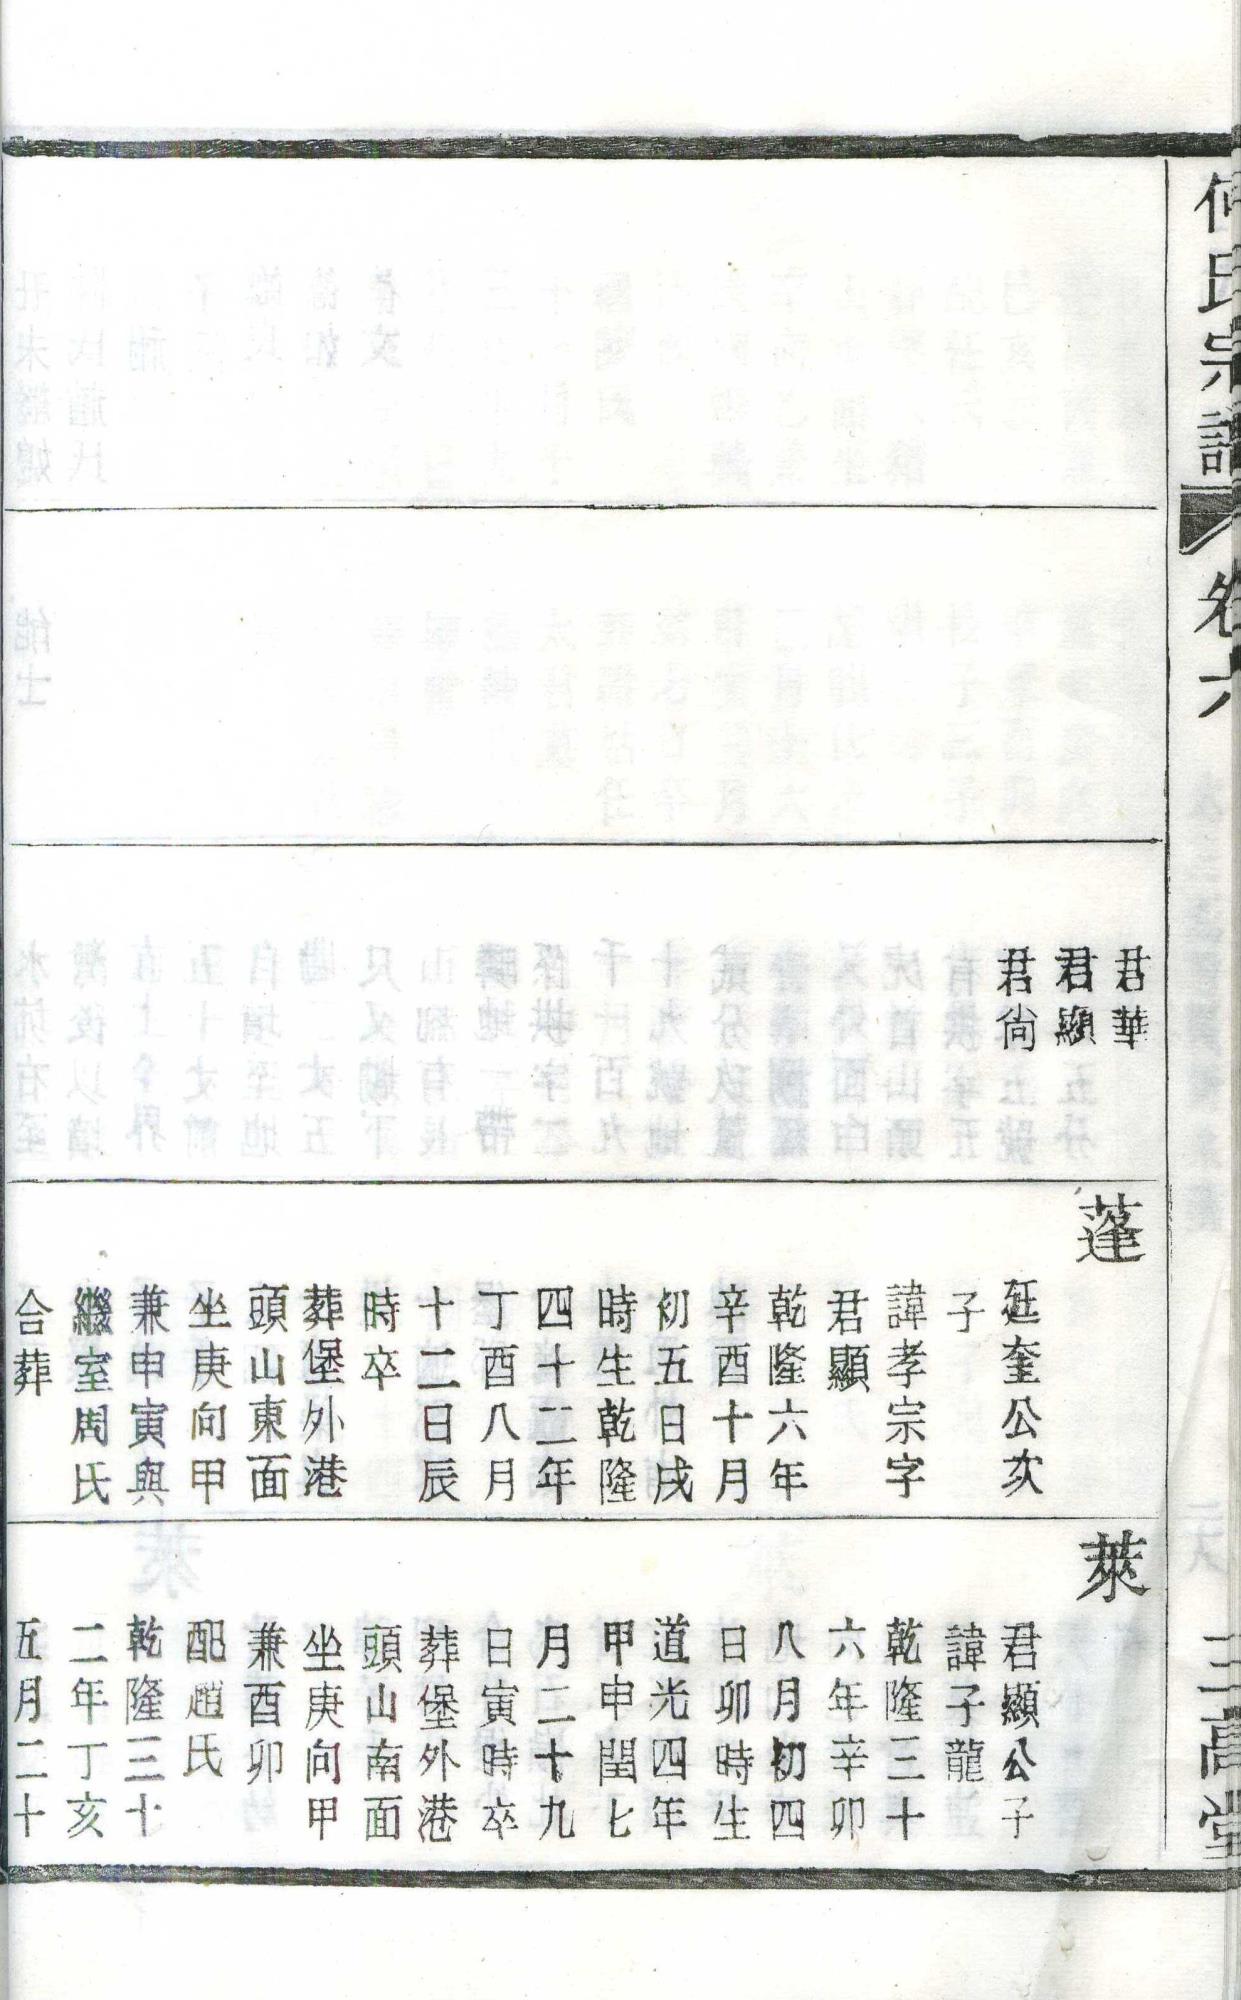 何氏宗譜
卷六
三高堂
君華
君顯
君尙
蓬
延奎公次
子
諱孝宗字
君顯
乾隆六年
辛酉十月
初五日戌
時生乾隆
四十二年
丁酉八月
十二日辰
時卒
葬堡外港
頭山東面
坐庚向甲
兼申寅與
繼室周氏
合葬
萊
君顯公子
諱子龍
乾隆三十
六年辛卯
八月初四
日卯時生
道光四年
甲申閏七
月二十九
日寅時卒
葬堡外港
頭山南面
坐庚向甲
兼酉卯
配趙氏
乾隆三十
二年丁亥
五月二十